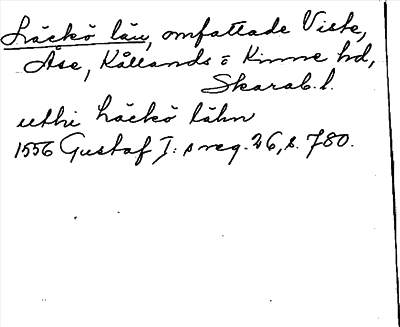 Läckö län, omfattade Viste,
Åse, Kållands o Kinne hd,
Skarab. l.
uthi Läckö lähn
1556 Gustaf I:s reg. 26, s. 780.